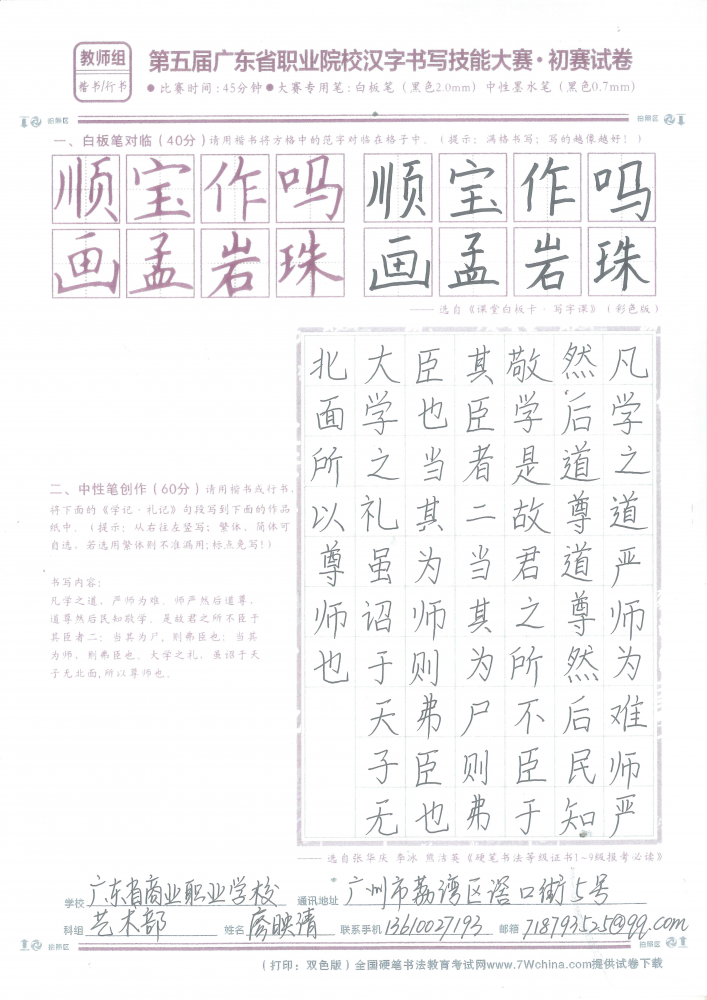 教师组
楷书/行书
第五届广东省职业院校汉字书写技能大赛·初赛试卷
●比赛时间:45分钟●大赛专用笔:白板笔（黑色2.0mm）中性墨水笔（黑色0.7mm）
拍照区 拍照区
一、白板笔对临（40分）请用楷书将方格中的范字对临在格子中。（提示：满格书写；写的越像越好！）
顺宝作吗 顺宝作吗
画孟岩珠 画孟岩珠
——选自《课堂白板卡·写字课》（彩色版）
凡学之道严师为难师严
然后道尊道尊然后民知
敬学是故君之所不臣于
其臣者二当其为尸则弗
臣也当其为师则弗臣也
大学之礼虽诏于天子无
北面所以尊师也
二、中性笔创作（60分）请用楷书或行书，
将下面的《学记·礼记》句段写到下面的作品
纸中。（提示：从右往左竖写；繁体、简体可
自选，若选用繁体则不准漏用;标点免写!）
书写内容：
凡学之道，严师为难。师严然后道尊，
道尊然后民知敬学。是故君之所不臣于
其臣者二：当其为尸，则弗臣也；当其
为师，则弗臣也。大学之礼，虽诏于天
子无北面,所以尊师也。
——选自张华庆 李冰 熊洁英《硬笔书法等级证书1~9级报考必读》
学校 广东省商业职业学校 通讯地址 广州市荔湾区滘口街5号
科组 艺术部 姓名 廖映清 联系手机 13610027193 邮箱 718793525@qq.com
拍照区 拍照区
（打印：双色版）全国硬笔书法教育考试网www.7Wchina.com提供试卷下载